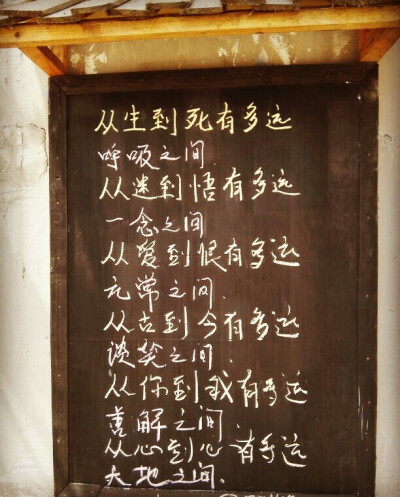 从生到死有多远
呼吸之间
从迷到悟有多远
一念之间
从爱到恨有多远
无常之间.
从古到今有多远
谈笑之间.
从你到我有多远
善解之间
从心到心有多远
天地之间.